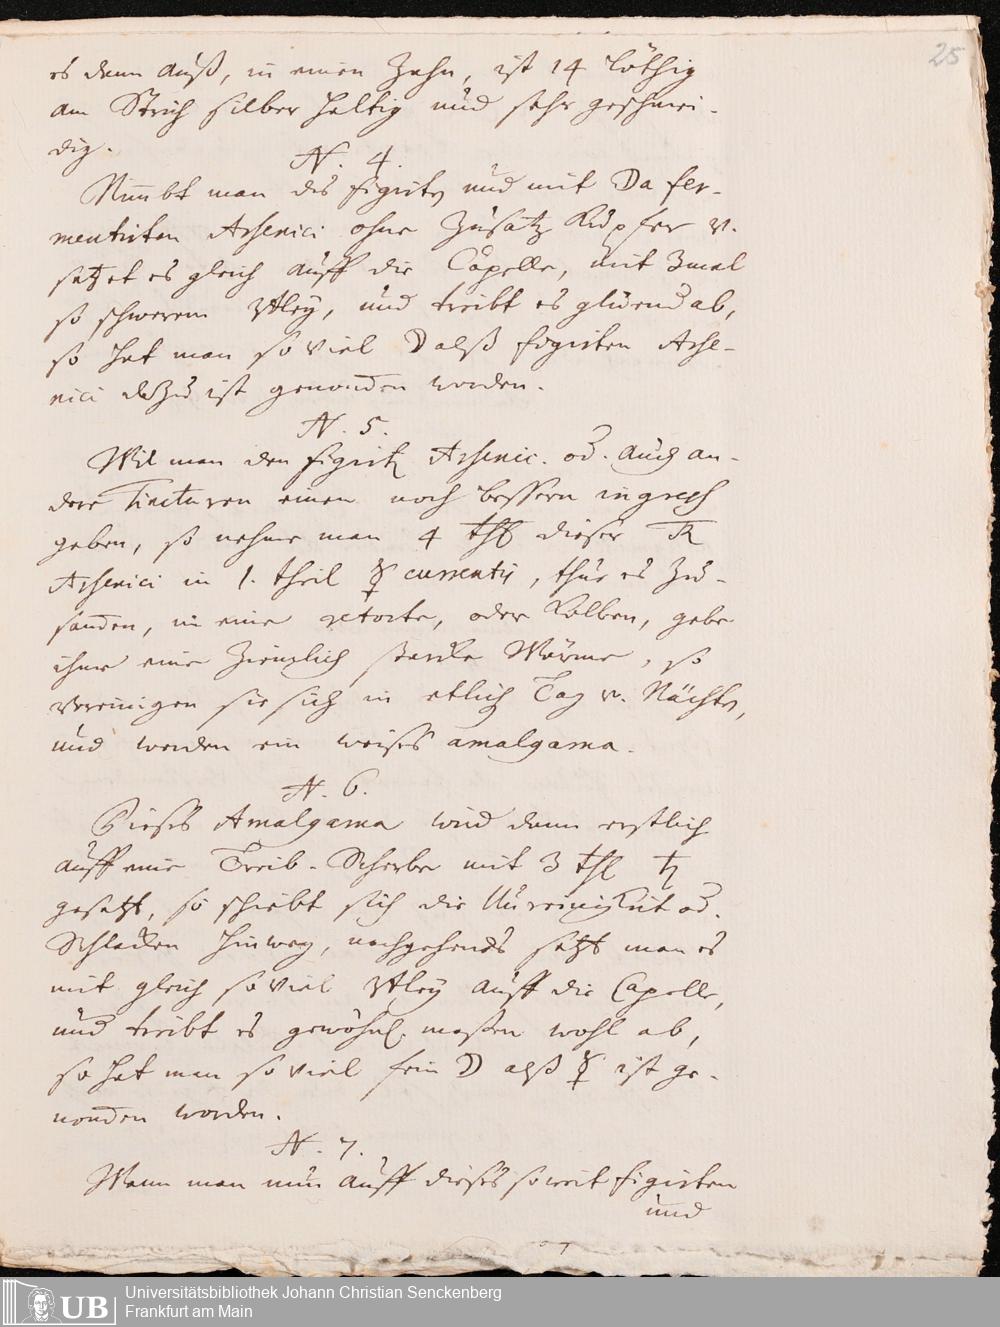 25
es dann auß, in einen Zahn, ist 14 löthig
am Strich silber haltig und sehr geschmei-
dig.
N. 4.
Nimbt man des figirten und mit Da fer-
mentirten Arsenici ohne Zusatz Kupfer v.
setzet es gleich auff die Capelle, mit 3mal
so schwerem Bley, und treibt es glüend ab,
so hat man so viel ☽ alß figirten Arse-
nici dazu ist genommen worden.
N. 5.
Wil man den figirten Arsenic. od. auch an-
dere Tincturen einen noch bessern ingress
geben, so nehme man 4 thl dieser
Arsenici in 1. theil ☿ currentis, thue es zu-
sammen, in eine retorte, oder Kolben, gebe
ihme eine ziemlich starcke Wärme, so
vereinigen sie sich in etlich Tag v. Nächten,
und werden ein weises amalgama.
N. 6.
Dieses Amalgama wird dann erstlich
auff eine Treib-Scherbe mit 3 thl ♄
gesetzt, so schiebt sich die Unreinigkeit od.
Schlacken hinweg, nachgehends setzt man es
mit gleich so viel Bley auff die Capelle,
und treibt es gewöhnl. maßen wohl ab,
so hat man so viel fein ☽ alß ☿ ist ge-
nommen worden.
N. 7.
Wenn man nun auff dieses so weit figirten
und
UB
Universitätsbibliothek Johann Christian Senckenberg
Frankfurt am Main